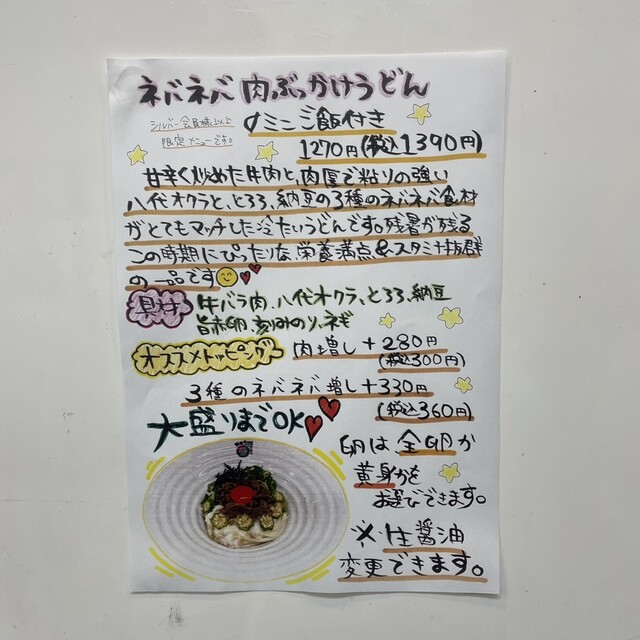 ネバネバ肉ぶっかけうどん
シルバー会員様以上
限定メニューです。
ミニご飯付き
1270円(税込1390円)
甘辛く炒めた牛肉と、肉厚で粘りの強い
八代オクラと、とろろ、納豆の3種のネバネバ食材
がとてもマッチした冷たいうどんです。残暑が残る
この時期にぴったりな、栄養満点&スタミナ抜群
の一品です
具材 牛バラ肉、八代オクラ、とろろ、納豆
旨赤卵、刻みのり、ネギ
オススメトッピング 肉増し+280円
(税込300円)
3種のネバネバ増し+330円
(税込360円)
大盛りまでOK
卵は全卵か
黄身かを
お選びできます。
※生醤油
変更できます。